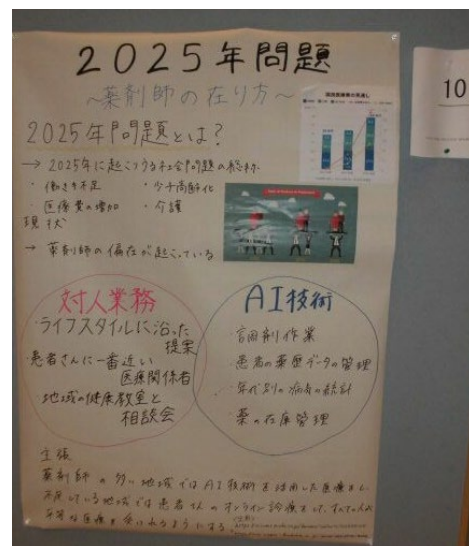 2025年問題
～薬剤師の在り方～
2025年問題とは？
→ 2025年に起こりうる社会問題の総称
・働き手不足 ・少子高齢化
・医療費の増加 ・介護
現状
→ 薬剤師の偏在が起こっている
対人業務
・ライフスタイルに沿った
提案
・患者さんに一番近い
医療関係者
・地域の健康教室と
相談会
AI技術
・調剤作業
・患者の薬歴データの管理
・年代別の病気の統計
・薬の在庫管理
主張
薬剤師の多い地域ではAI技術を活用した医療をし、
不足している地域では患者さんのオンライン診療をして、すべての人が
平等な医療を受けられるようにする。
10